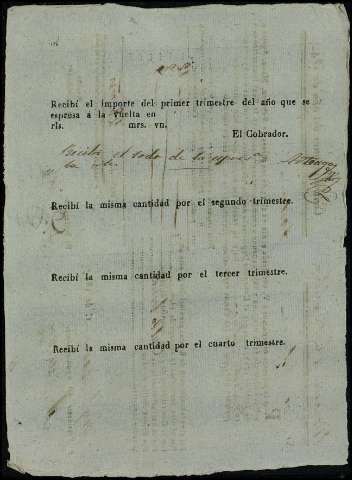 Recibí el importe del primer trimestre del año que se
espresa á la vuelta en
rls. mrs. vn.
El Cobrador.
Recibí el todo de la
Recibí la misma cantidad por el segundo trimestre.
Recibí la misma cantidad por el tercer trimestre.
Recibí la misma cantidad por el cuarto trimestre.